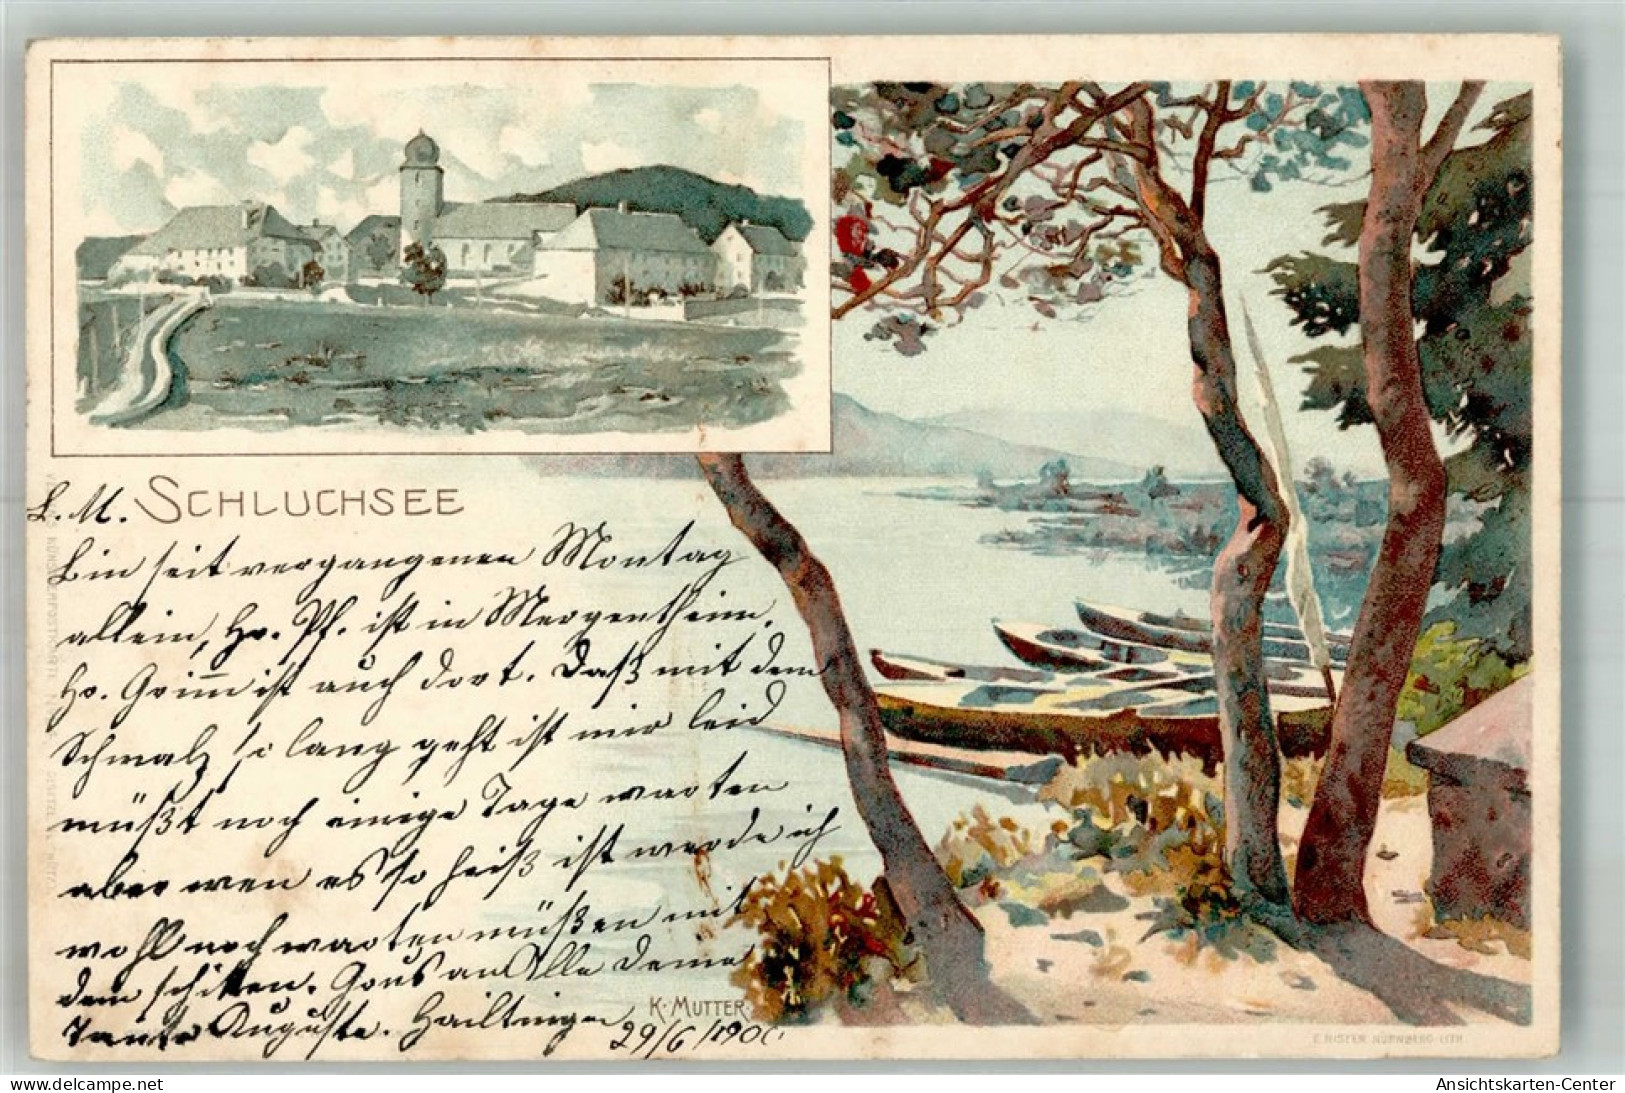 SCHLUCHSEE
L. M.
Bin seit vergangenen Montag
allein, Hr. Pf. ist in Mergentheim,
Hr. Grimm ist auch dort. Daß mit dem
Schmalz so lang geht ist mir leid
müßt noch einige Tage warten
aber wen es so heiß ist werde ich
wohl noch warten müßen mit
dem schiken. Grus an Alle Deine
Tante Auguste. Hailtingen
29/6/1900.
K. MUTTER
E. NISTER NÜRNBERG LITH.
www.delcampe.net
Ansichtskarten-Center